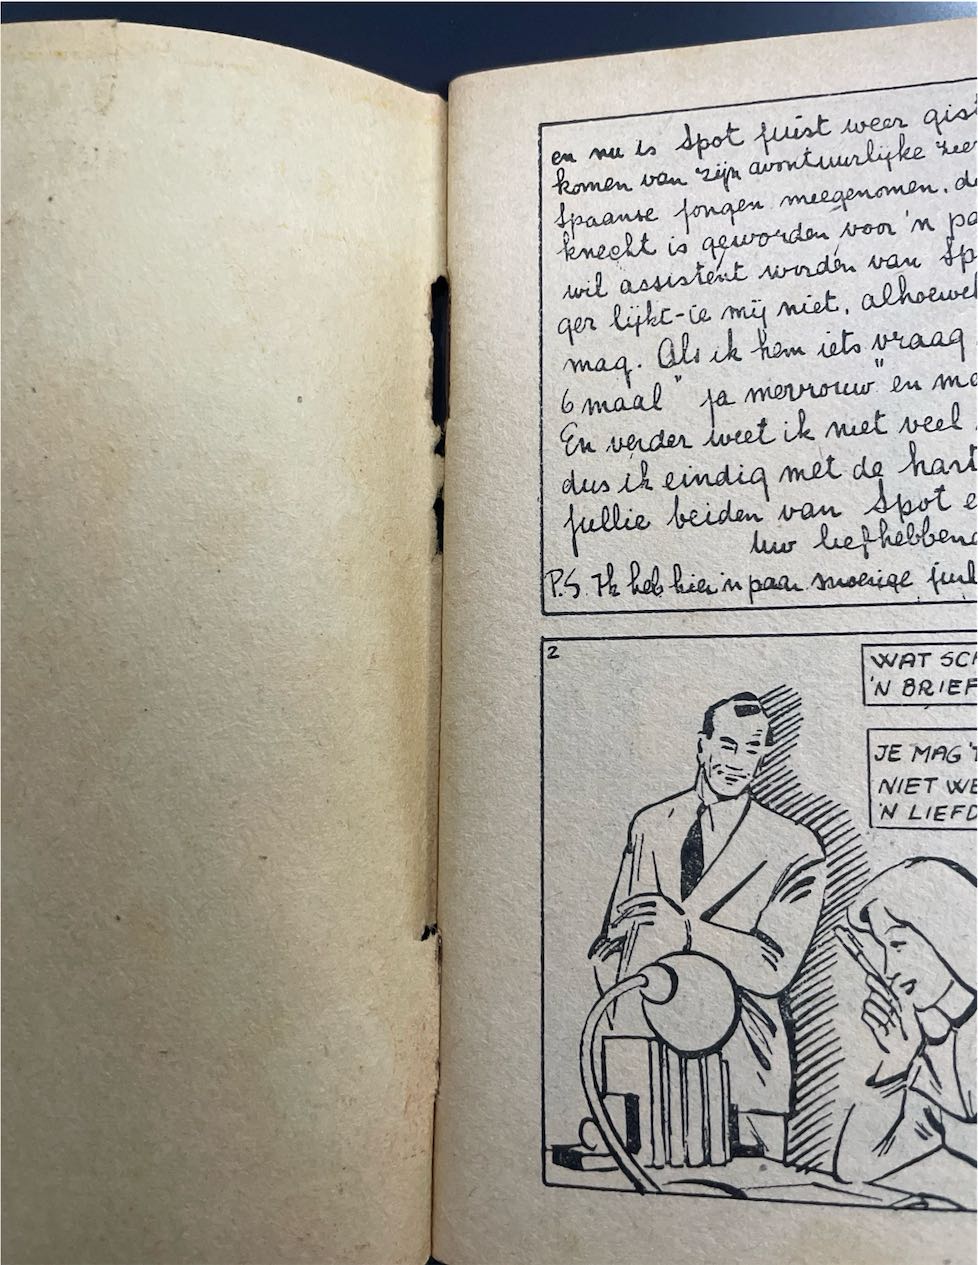 en nu is Spot juist weer gist
komen van zijn avontuurlijke zee
Spaanse jongen meegenomen, d
knecht is geworden voor 'n pa
wil assistent worden van Sp
ger lijkt-ie mij niet, alhoewel
mag. Als ik hem iets vraag
6 maal "ja mevrouw" en ma
En verder weet ik niet veel
dus ik eindig met de hart
jullie beiden van Spot e
Uw liefhebbend
P.S. Ik heb hier 'n paar smoezige
2
WAT SCH
'N BRIEF
JE MAG 'T
NIET WE
'N LIEFD